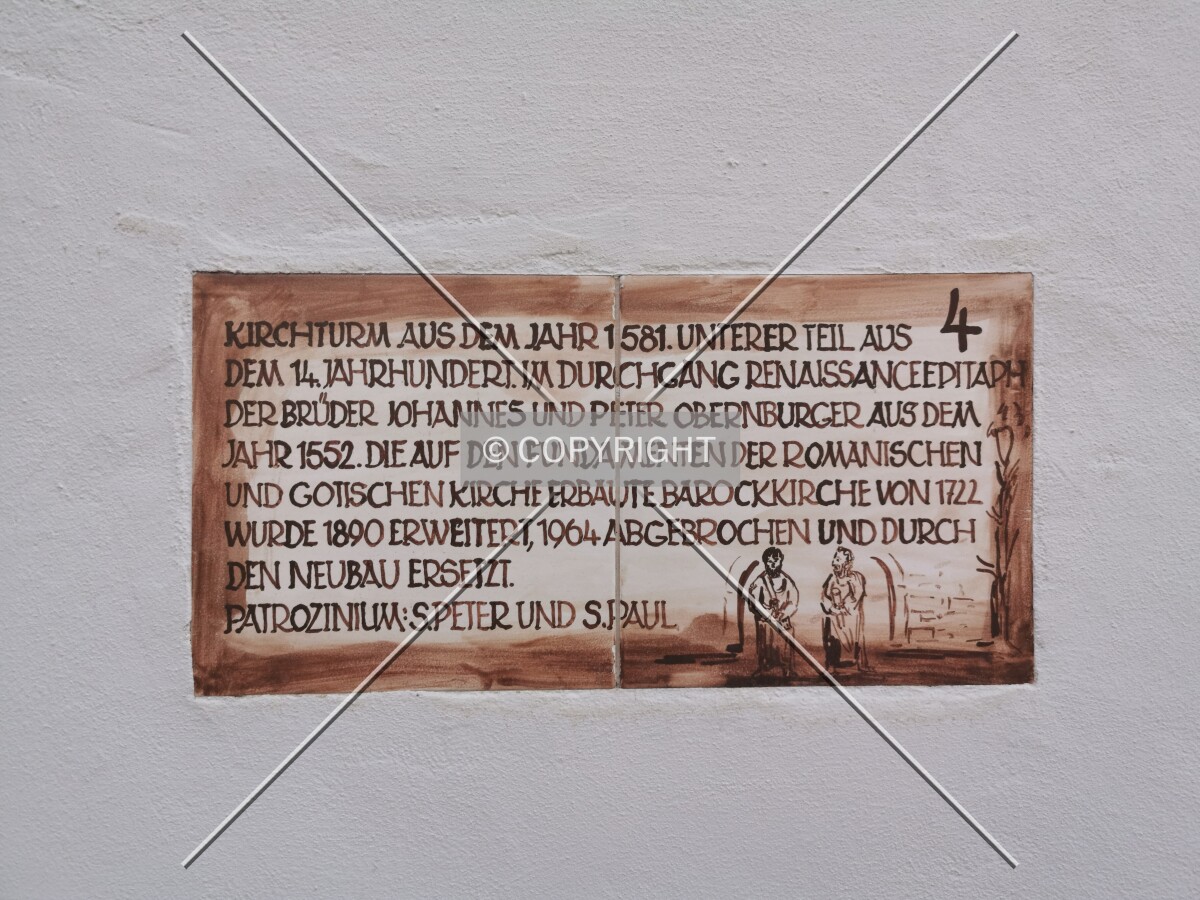 4
KIRCHTURM AUS DEM JAHR 1581. UNTERER TEIL AUS
DEM 14. JAHRHUNDERT. IM DURCHGANG RENAISSANCEEPITAPH
DER BRÜDER JOHANNES UND PETER OBERNBURGER AUS DEM
JAHR 1552. DIE AUF DEN FUNDAMENTEN DER ROMANISCHEN
UND GOTISCHEN KIRCHE ERBAUTE BAROCKKIRCHE VON 1722
WURDE 1890 ERWEITERT, 1964 ABGEBROCHEN UND DURCH
DEN NEUBAU ERSETZT.
PATROZINIUM: S. PETER UND S. PAUL
© COPYRIGHT